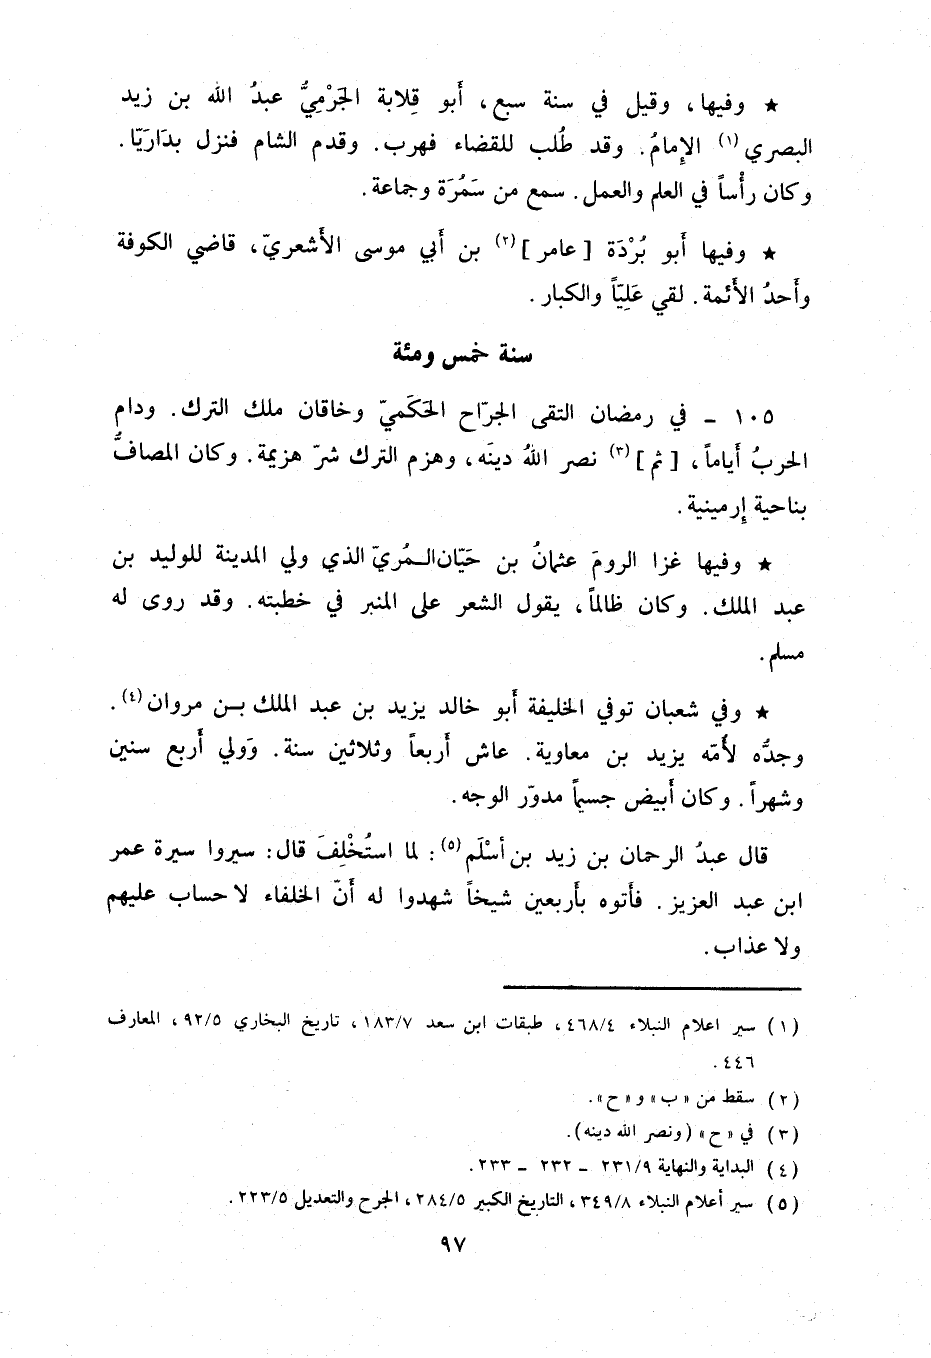 ★ وفيها، وقيل في سنة سبع، أَبو قِلابة الجَرْمِيُّ عبدُ الله بن زيد
البصري (١) الإِمامُ. وقد طُلب للقضاء فهرب. وقدم الشام فنزل بدَارَيّا.
وكان رأْساً في العلم والعمل. سمع من سَمُرَة وجماعة.
★ وفيها أَبو بُرْدَة [ عامر ] (٢) بن أَبي موسى الأَشعريّ، قاضي الكوفة
وأَحدُ الأَئمة. لقي عَلِيّاً والكبار.
سنة خمس ومئة
١٠٥ ـ في رمضان التقى الجرّاح الحَكَميّ وخاقان ملك الترك. ودام
الحربُ أَياماً، [ ثم ] (٣) نصر اللهُ دينَه، وهزم الترك شرّ هزيمة. وكان المصافُّ
بناحية إِرمينية.
★ وفيها غزا الرومَ عثمانُ بن حَيّان المُريّ الذي ولي المدينة للوليد بن
عبد الملك. وكان ظالماً، يقول الشعر على المنبر في خطبته. وقد روى له
مسلم.
★ وفي شعبان توفي الخليفة أَبو خالد يزيد بن عبد الملك بـن مروان (٤).
وجدُّه لأُمّه يزيد بن معاوية. عاش أَربعاً وثلاثين سنة. وَولي أَربع سنين
وشهراً. وكان أَبيض جسيماً مدوّر الوجه.
قال عبدُ الرحمان بن زيد بن أسْلَم (٥): لما استُخْلِفَ قال: سيروا سيرة عمر
ابن عبد العزيز. فأَتوه بأَربعين شيخاً شهدوا له أَنّ الخلفاء لا حساب عليهم
ولا عذاب.
(١) سير اعلام النبلاء ٤٦٨/٤، طبقات ابن سعد ١٨٣/٧، تاريخ البخاري ٩٢/٥، المعارف
٤٤٦.
(٢) سقط من «ب» و «ح».
(٣) في «ح» (ونصر الله دينه).
(٤) البداية والنهاية ٢٣١/٩ ـ ٢٣٢ ـ ٢٣٣.
(٥) سير أعلام النبلاء ٣٤٩/٨، التاريخ الكبير ٢٨٤/٥، الجرح والتعديل ٢٢٣/٥.
٩٧